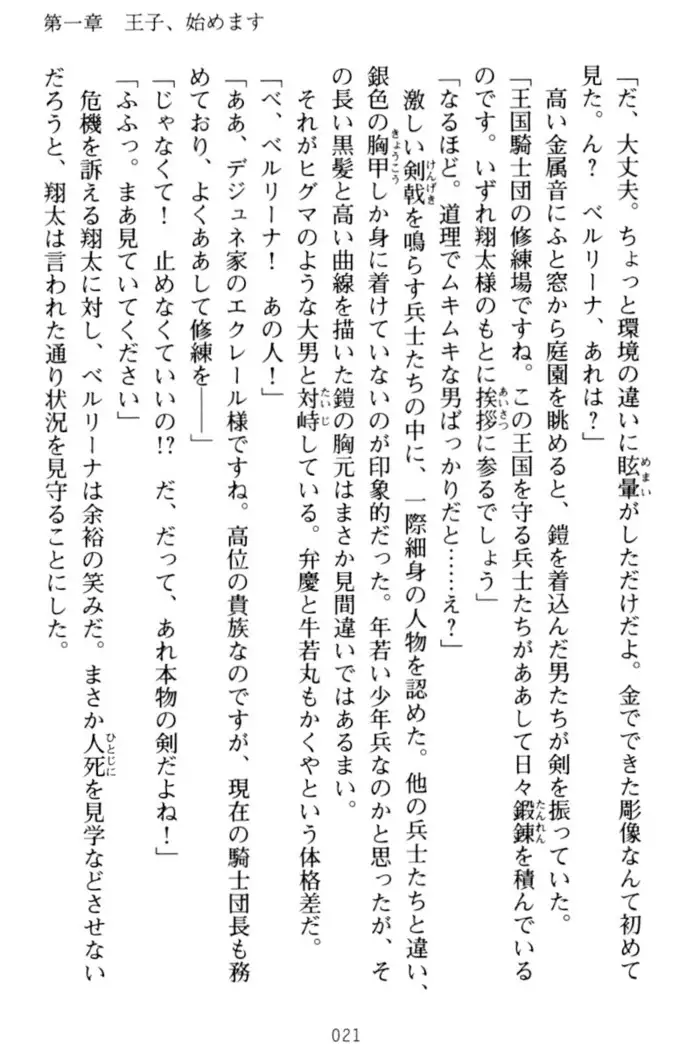 第一章　王子、始めます
「だ、大丈夫。ちょっと環境の違いに眩暈がしただけだよ。金でできた彫像なんて初めて
見た。ん？　ベルリーナ、あれは？」
　高い金属音にふと窓から庭園を眺めると、鎧を着込んだ男たちが剣を振っていた。
「王国騎士団の修練場ですね。この王国を守る兵士たちがああして日々鍛錬を積んでいる
のです。いずれ翔太様のもとに挨拶に参るでしょう」
「なるほど。道理でムキムキな男ばっかりだと……え？」
　激しい剣戟を鳴らす兵士たちの中に、一際細身の人物を認めた。他の兵士たちと違い、
銀色の胸甲しか身に着けていないのが印象的だった。年若い少年兵なのかと思ったが、そ
の長い黒髪と高い曲線を描いた鎧の胸元はまさか見間違いではあるまい。
　それがヒグマのような大男と対峙している。弁慶と牛若丸もかくやという体格差だ。
「べ、ベルリーナ！　あの人！」
「ああ、デジュネ家のエクレール様ですね。高位の貴族なのですが、現在の騎士団長も務
めており、よくああして修練を――」
「じゃなくて！　止めなくていいの!?　だ、だって、あれ本物の剣だよね！」
「ふふっ。まあ見ていてください」
　危機を訴える翔太に対し、ベルリーナは余裕の笑みだ。まさか人死を見学などさせない
だろうと、翔太は言われた通り状況を見守ることにした。
021